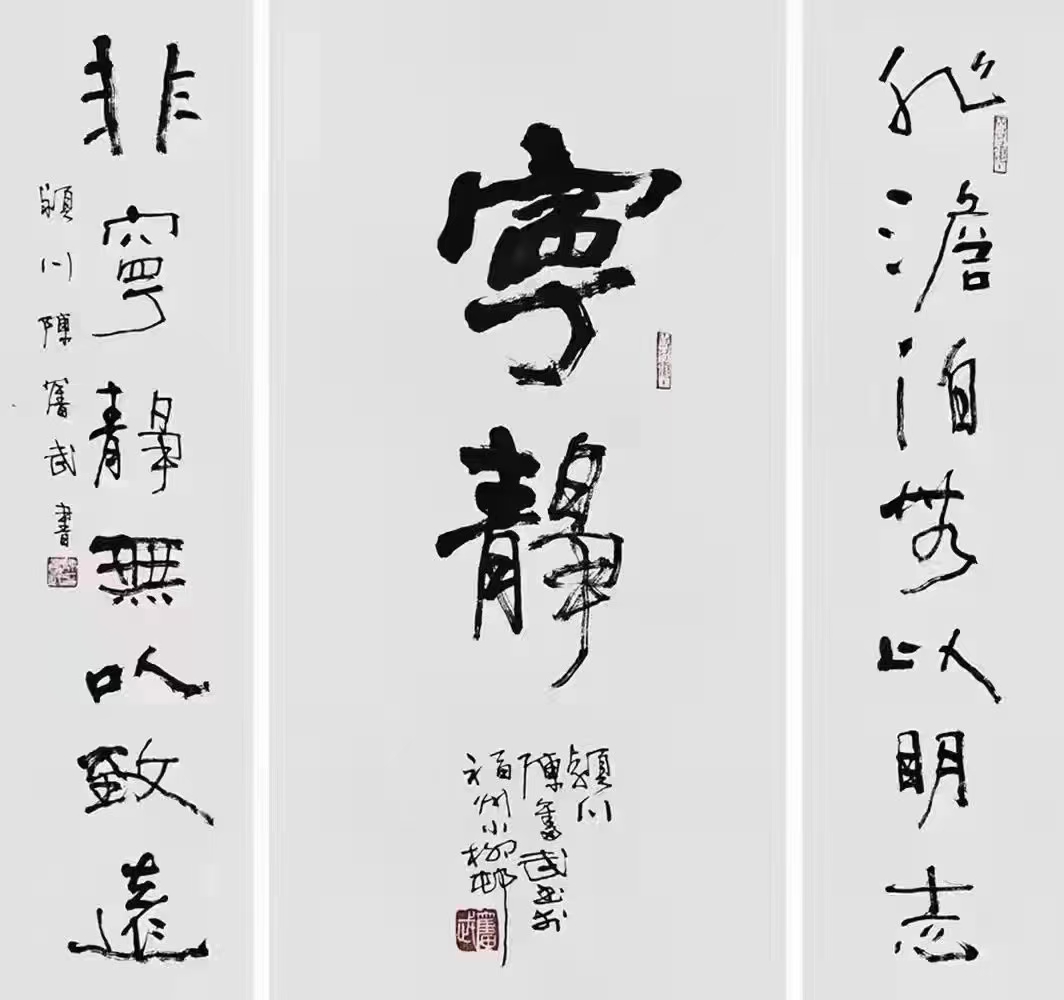 非澹泊無以明志
寧靜
潁川
陳奮武書於
福州小柳邨
奮武
非寧靜無以致遠
潁川陳奮武書